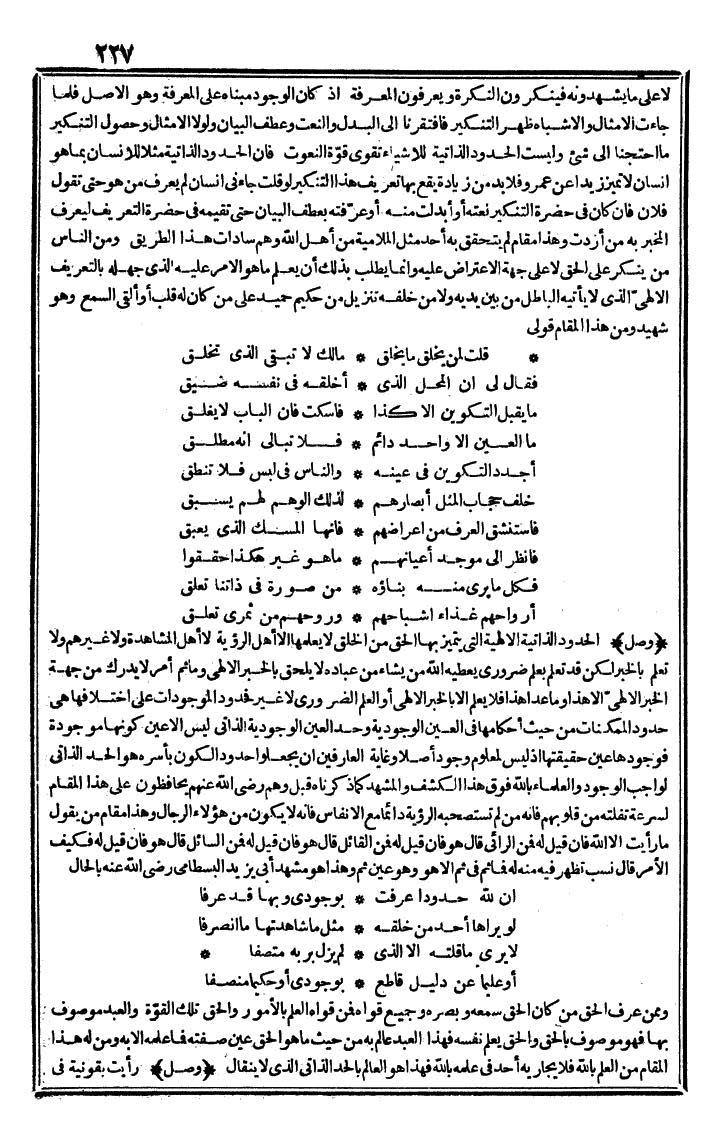 ٢٢٧
لا على ما يشهدونه فينكرون النكرة ويعرفون المعرفة اذ كان الوجود مبناه على المعرفة وهو الاصل فلما
جاءت الامثال والاشباه ظهر التنكير فافتقرنا الى البدل والنعت وعطف البيان ولولا الامثال وحصول التنكير
ما احتجنا الى شئ وليست الحدود الذاتية للاشياء تقوى قوّة النعوت فان الحدود الذاتية مثلا للانسان بما هو
انسان لا تميز زيدا عن عمرو فلابد من زيادة يقع بها تعريف هذا التنكير لو قلت جاءنى انسان لم يعرف من هو حتى تقول
فلان فان كان فى حضرة التنكير نعته أو أبدلت منه أو عرّفته بعطف البيان حتى تقيمه فى حضرة التعريف ليعرف
المخبر به من أردت وهذا مقام لم يتحقق به أحد مثل الملامية من أهل الله وهم سادات هذا الطريق ومن الناس
من ينكر على الحق لا على جهة الاعتراض عليه وانما يطلب بذلك أن يعلم ما هو الامر عليه الذى جهله بالتعريف
الالهىّ الذى لا يأتيه الباطل من بين يديه ولا من خلفه تنزيل من حكيم حميد على من كان له قلب أو ألقى السمع وهو
شهيد ومن هذا المقام قولى
* قلت لمن يخلق ما يخلق * مالك لا تبقى الذى تخلق
فقال لى ان المحل الذى * أخلقه فى نفسه ضيق
ما يقبل التكوين الا كذا * فاسكت فان الباب لا يغلق
ما العين الا واحد دائم * فلا تبالى انه مطلق
أجدد التكوين فى عينه * والناس فى لبس فلا تنطق
خلف حجاب المثل أبصارهم * لذلك الوهم لهم يسبق
فاستنشق العرف من اعراضهم * فانها المسك الذى يعبق
فانظر الى موجد أعيانهم * ما هو غير هكذا حققوا
فكل ما يرى منه بناؤه * من صورة فى ذاتنا تعلق
أرواحهم غذاء اشباحهم * وروحهم من ثمرى تعلق
﴿وصل﴾ الحدود الذاتية الالهية التى يتميز بها الحق من الخلق لا يعلمها الا أهل الرؤية لا أهل المشاهدة ولا غيرهم ولا
تعلم بالخبر لكن قد تعلم بعلم ضرورى يعطيه الله من يشاء من عباده لا يلحق بالخبر الالهى وما ثم أمر لا يدرك من جهة
الخبر الالهىّ الا هذا وما عدا هذا فلا يعلم الا بالخبر الالهى أو العلم الضرورى لا غير فحدود الموجودات على اختلافها هى
حدود الممكنات من حيث أحكامها فى العين الوجودية وحد العين الوجودية الذاتى ليس الا عين كونها موجودة
فوجودها عين حقيقتها اذ ليس لمعلوم وجود أصلا وغاية العارفين ان يجعلوا حدود الكون بأسره هو الحد الذاتى
لواجب الوجود والعلماء بالله فوق هذا الكشف والمشهد كما ذكرناه قبل وهم رضى الله عنهم يحافظون على هذا المقام
لسرعة تفلته من قلوبهم فانه من لم تستصحبه الرؤية دائما مع الانفاس فانه لا يكون من هؤلاء الرجال وهذا مقام من يقول
ما رأيت الا الله فان قيل له فمن الرائى قال هو فان قيل له فمن القائل قال هو فان قيل له فمن السائل قال هو فان قيل له فكيف
الأمر قال نسب تظهر فيه منه له فما ثم فى ثم الا هو وهو عين ثم وهذا هو مشهد أبى يزيد البسطامى رضى الله عنه بالحال
ان لله حدودا عرفت * بوجودى وبها قد عرفا
لو يراها أحد من خلقه * مثل ما شاهدتها ما انصرفا
لا يرى ما قلته الا الذى * لم يزل بربه متصفا *
أو عليما عن دليل قاطع * بوجودى أو حكيما منصفا
وممن عرف الحق من كان الحق سمعه وبصره وجميع قواه فمن قواه العلم بالأمور والحق تلك القوّة والعبد موصوف
بها فهو موصوف بالحق والحق يعلم نفسه فهذا العبد عالم به من حيث ما هو الحق عين صفته فما علمه الا به ومن له هذا
المقام من العلم بالله فلا يجاريه أحد فى علمه بالله فهذا هو العالم بالحد الذاتى الذى لا ينقال ﴿وصل﴾ رأيت بقونية فى